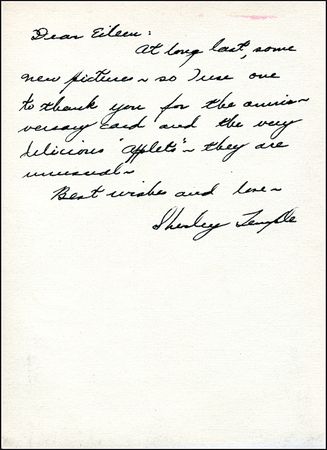 Dear Eileen:
At long last, some
new pictures ~ so I use one
to thank you for the anni-
versary card and the very
delicious "Applets" ~ they are
unusual ~
Best wishes and love ~
Shirley Temple